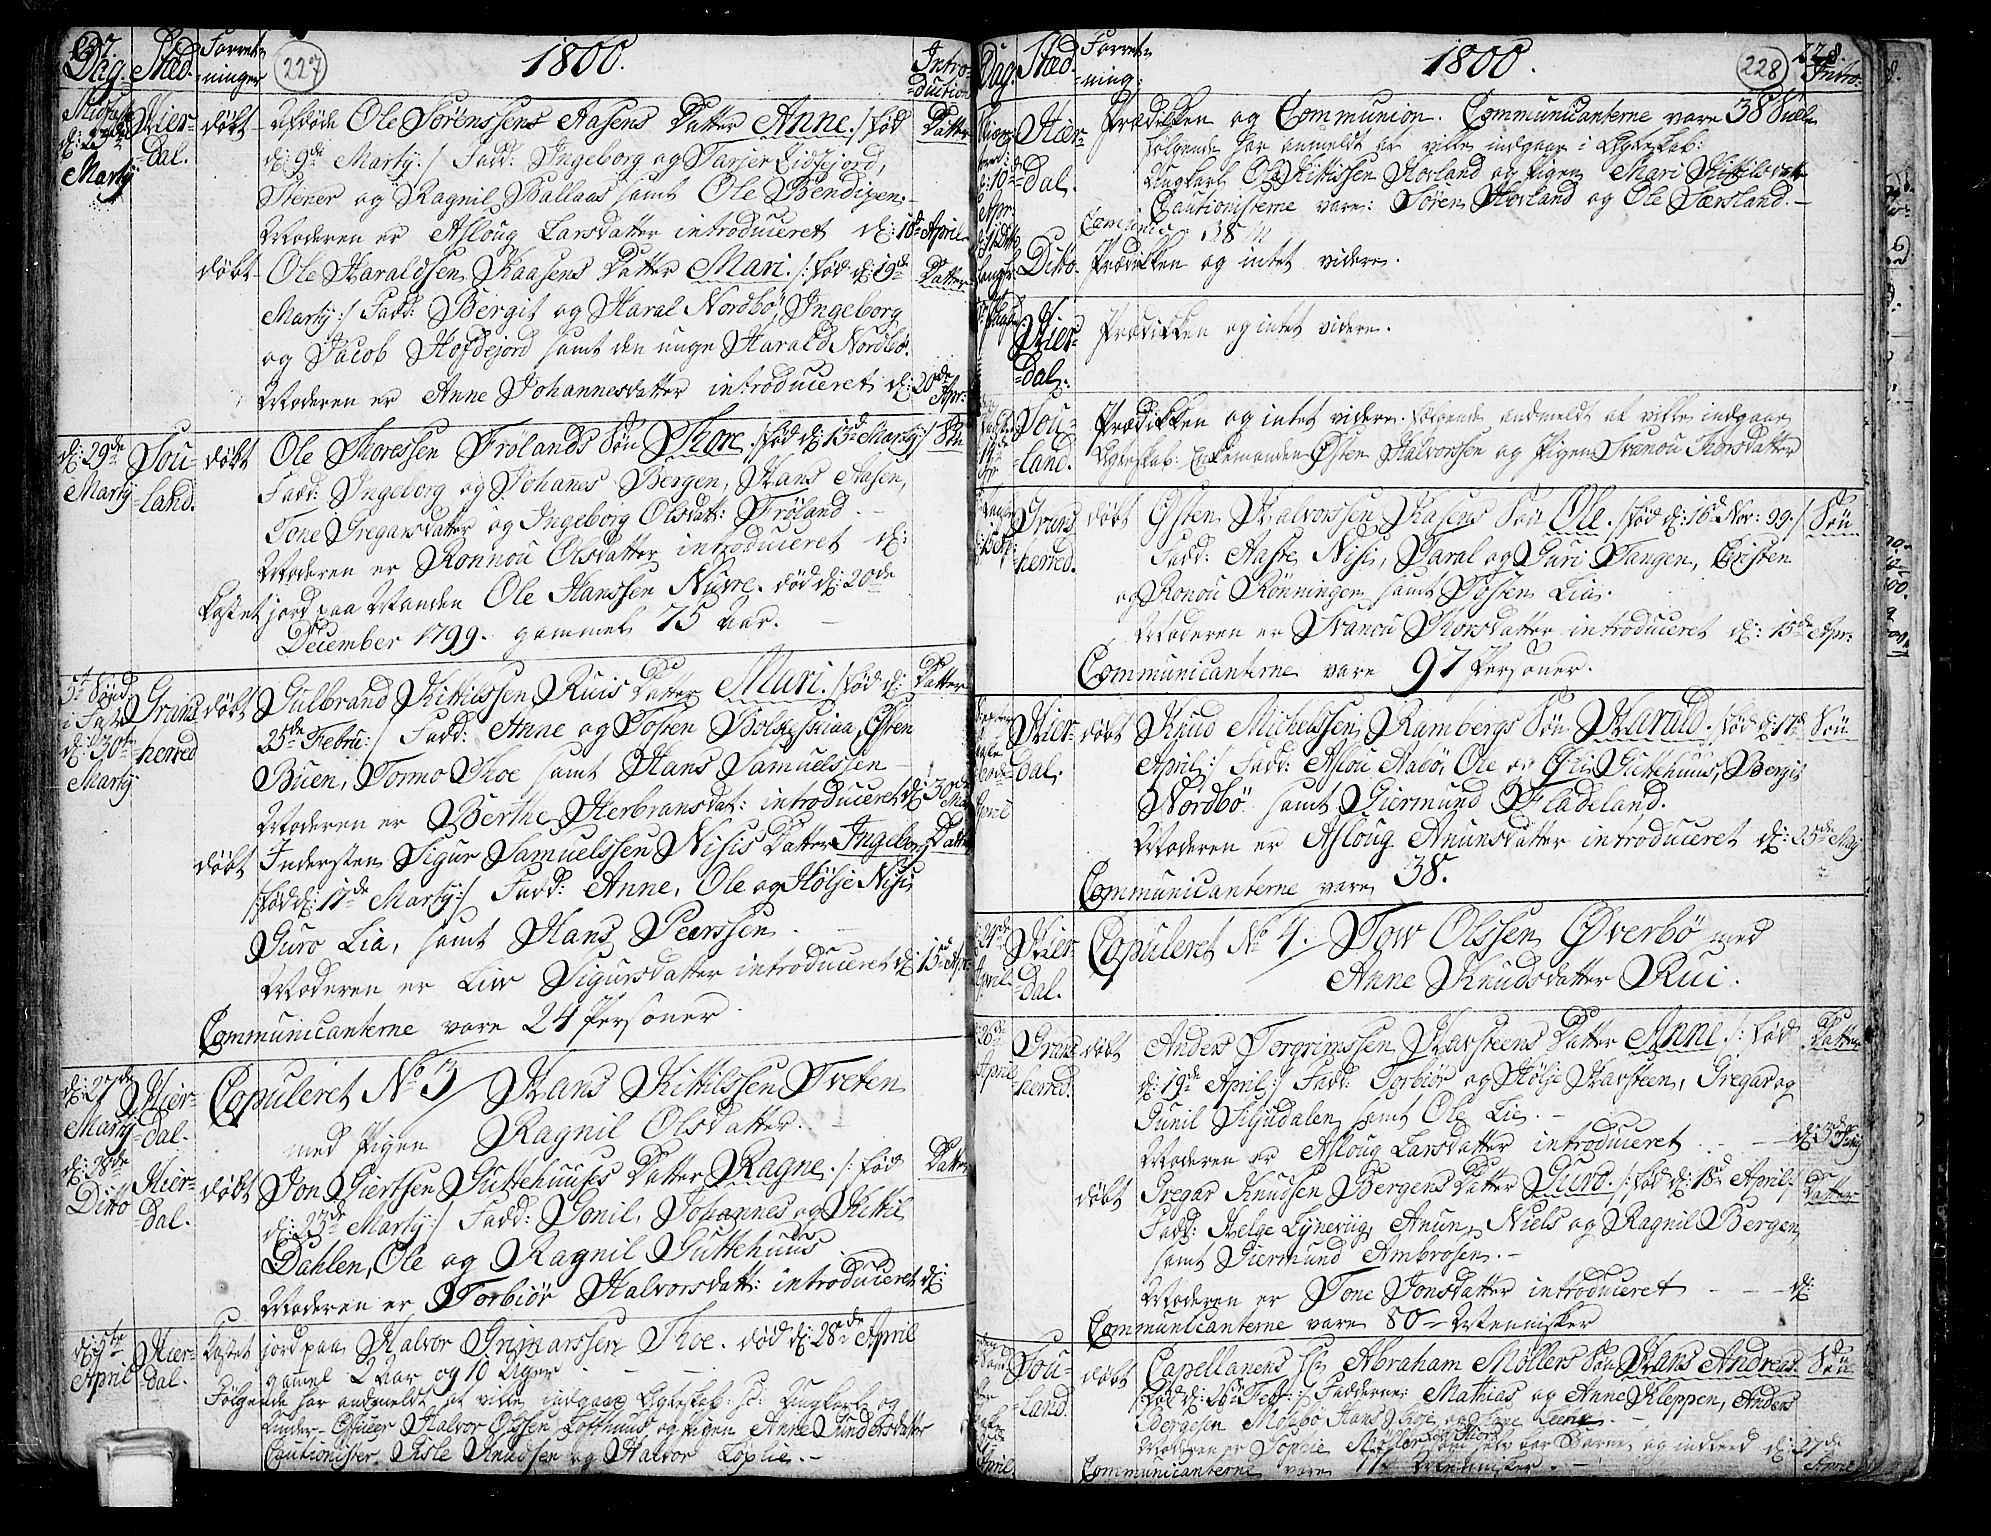 227.
Dag. Sted. Forret-
ninger 227 1800. Intro-
duction
Midfaste
d: 23de
Martÿ Hier-
dal. døbt Afdøde Ole Sörenssens Aasens Datter Anne. /: fød Datter
d: 9de Martÿ :/ Fadd: Ingeborg og Tarjer Eidsfjord,
Stener og Ragnil Ballaas samt Ole Bendixen.
Moderen er Asloug Larsdatter introduceret d: 18de April
døbt Ole Haraldsen Kaasens Datter Mari. /: fød d: 19de Datter
Martÿ :/ Fadd: Bergit og Haral Nordbö, Ingeborg
og Jacob Hofdejord samt den unge Harald Nordbö.
Moderen er Anne Johannesdatter introduceret d: 20de Apr:
d: 29de
Martÿ Sou-
land. døbt Ole Thoressen Frolands Sön Thore. /: fød d: 13de Martÿ :/ Sön
Fadd: Ingeborg og Johanes Bergen, Hans Aasen,
Tone Gregarsdatter og Ingeborg Olsdatt: Fröland.
Moderen er Ronnou Olsdatter introduceret d:
Kastet jord paa Manden Ole Hanssen Nuvre. død d: 20de
December 1799. gammel 75 Aar.
5te Sönd
i Faste
d: 30te
Martÿ Grans-
herred døbt Gulbrand Kittilssen Ruis Datter Mari. /: fød d: Datter
25de Febru: :/ Fadd: Anne og Tosten Bolkesuiaa, Östen
Buen, Tormo Thoe samt Hans Samuelssen
Moderen er Berthe Herbransdat: introduceret d: 30de Ma
døbt Indersten Sigur Samuelssen Nisis Datter Ingeborg Datter
/: fød d: 17de Martÿ :/ Fadd: Anne, Ole og Hölje Nisi,
Guro Lia, samt Hans Peerssen.
Moderen er Liv Sigursdatter introduceret d: 13de Apr:
Communicanterne vare 24 Personer.
d: 27de
Martÿ Hier-
dal. Copuleret No 3 / Hans Kittilssen Treten
med Pigen Ragnil Olsdatter.
d: 28de
Ditto Hier-
dal. døbt Jon Giertsen Guttehuuses Datter Ragne. /: fød Datter
d: 23de Martÿ :/ Fadd: Gonil, Johannes og Kittil
Dahlen, Ole og Ragnil Guttehuus
Moderen er Torbiör Halvorsdatt: introduceret d:
d: 5te
April Hier-
dal. Kastet jord paa Halvor Grimarssen Thoe. død d: 28de April
gamel 2 Aar og 10 Uger
Følgende har andmeldt at ville indgaae Egteskab: sc: Ungkarl og
Under-Officer Halvor Olssen Loffthuus og Pigen Anne Gundersdatter
Cautionister Gisle Knudssen og Halvor Löplie.
Dag. Sted Forret-
ning: 1800. 228 228.
Intro:
d: 10de
Apr: Hier-
dal. Prædikken og Communion. Communicanterne vare 38 Siæle
Følgende har anmeldt at ville indgaae i Egteskab:
Ungkarl Ole Kittissen Hovland og Pigen Mari Kittilsdatt
Cautionisterne vare: Sören Hovland og Ole Særsland.
Ditto. Prædikken og intet videre.
Hier-
dal. Prædikken og intet videre.
Sou-
land. Prædikken og intet videre. Følgende andmeldt at ville indgaae
Egteskab: Enkemanden Østen Halvorssen og Pigen Svanou Thorsdatter
Grans
herred. døbt Østen Halvorssen Kasens Sön Ole. /: fød d: 16de Nov: 99. :/ Sön
Fadd: Aaste Nisi, Taral og Guri Tangen, Christen
og Ronou Rönningen samt Tosten Lia.
Moderen er Svanou Thorsdatter introduceret d: 15de Apr:
Communicanterne vare 97 Personer.
April Hier-
dal. døbt Knud Michelssen Rambergs Sön Harald. /: fød d: 17de Sön
April :/ Fadd: Aslou Aabö, Ole og Guttehuus, Bergit
Nordbö samt Giermund Fladeland.
Moderen er Asloug Anunsdatter introduceret d: 25de Maÿ
Communicanterne vare 38.
April Hier-
dal. Copuleret No 4. / Tow Olssen Øverbö med
Anne Knudsdatter Rui.
26de
April Grans
herred. døbt Anders Torgrimssen Havsteens Datter Anne. /: fød Datter
d: 19de April :/ Fadd: Torbiör og Hölje Havsteen, Gregar og
Gunil Siljudalen samt Ole Lie.
Moderen er Asloug Larsdatter introduceret - - - d: 3de Junÿ
døbt Gregar Knudsen Bergens Datter Guro. /: fød d: 18de April :/ Datter
Fadd: Helge Lyneviig, Anun, Niels og Ragnil Bergen
samt Giermund Ambrosen.
Moderen er Tone Jonsdatter introduceret - - - d:
Communicanterne vare 80 Mennisker
April Sou-
land. døbt Capellanens Hr Abraham Möllers Sön Hans Andreas. Sön
/: fød d: 26de Febr: :/ Fadderne: Mathias og Anne Kleppen, Anders
Moebö Hans Thoe,
Moderen er Sophie Möller som selv bar Barnet og indled d: 27de
April
Communicanterne vare Mennisker.